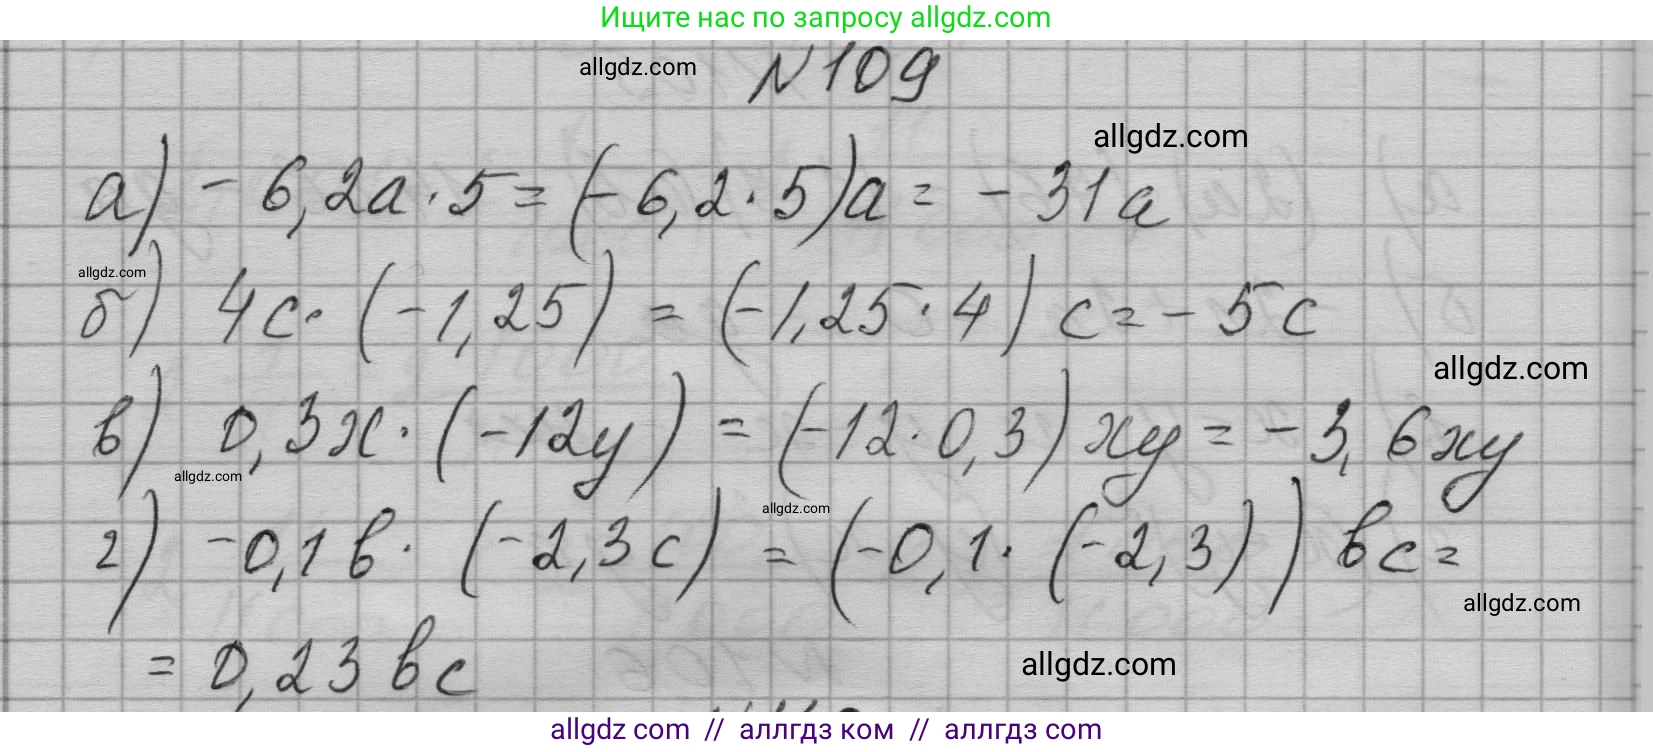 Ищите нас по запросу allgdz.com
allgdz.com
N109
allgdz.com
а) - 6,2a · 5 = (- 6,2 · 5)a = - 31a
allgdz.com
б) 4c · (-1,25) = (-1,25 · 4) c = - 5c
allgdz.com
в) 0,3x · (-12y) = (-12 · 0,3) xy = - 3,6xy
allgdz.com
allgdz.com
г) -0,1b · (-2,3c) = (-0,1 · (-2,3)) bc =
allgdz.com
= 0,23bc
allgdz.com
allgdz com // аллгдз ком // аллгдз com